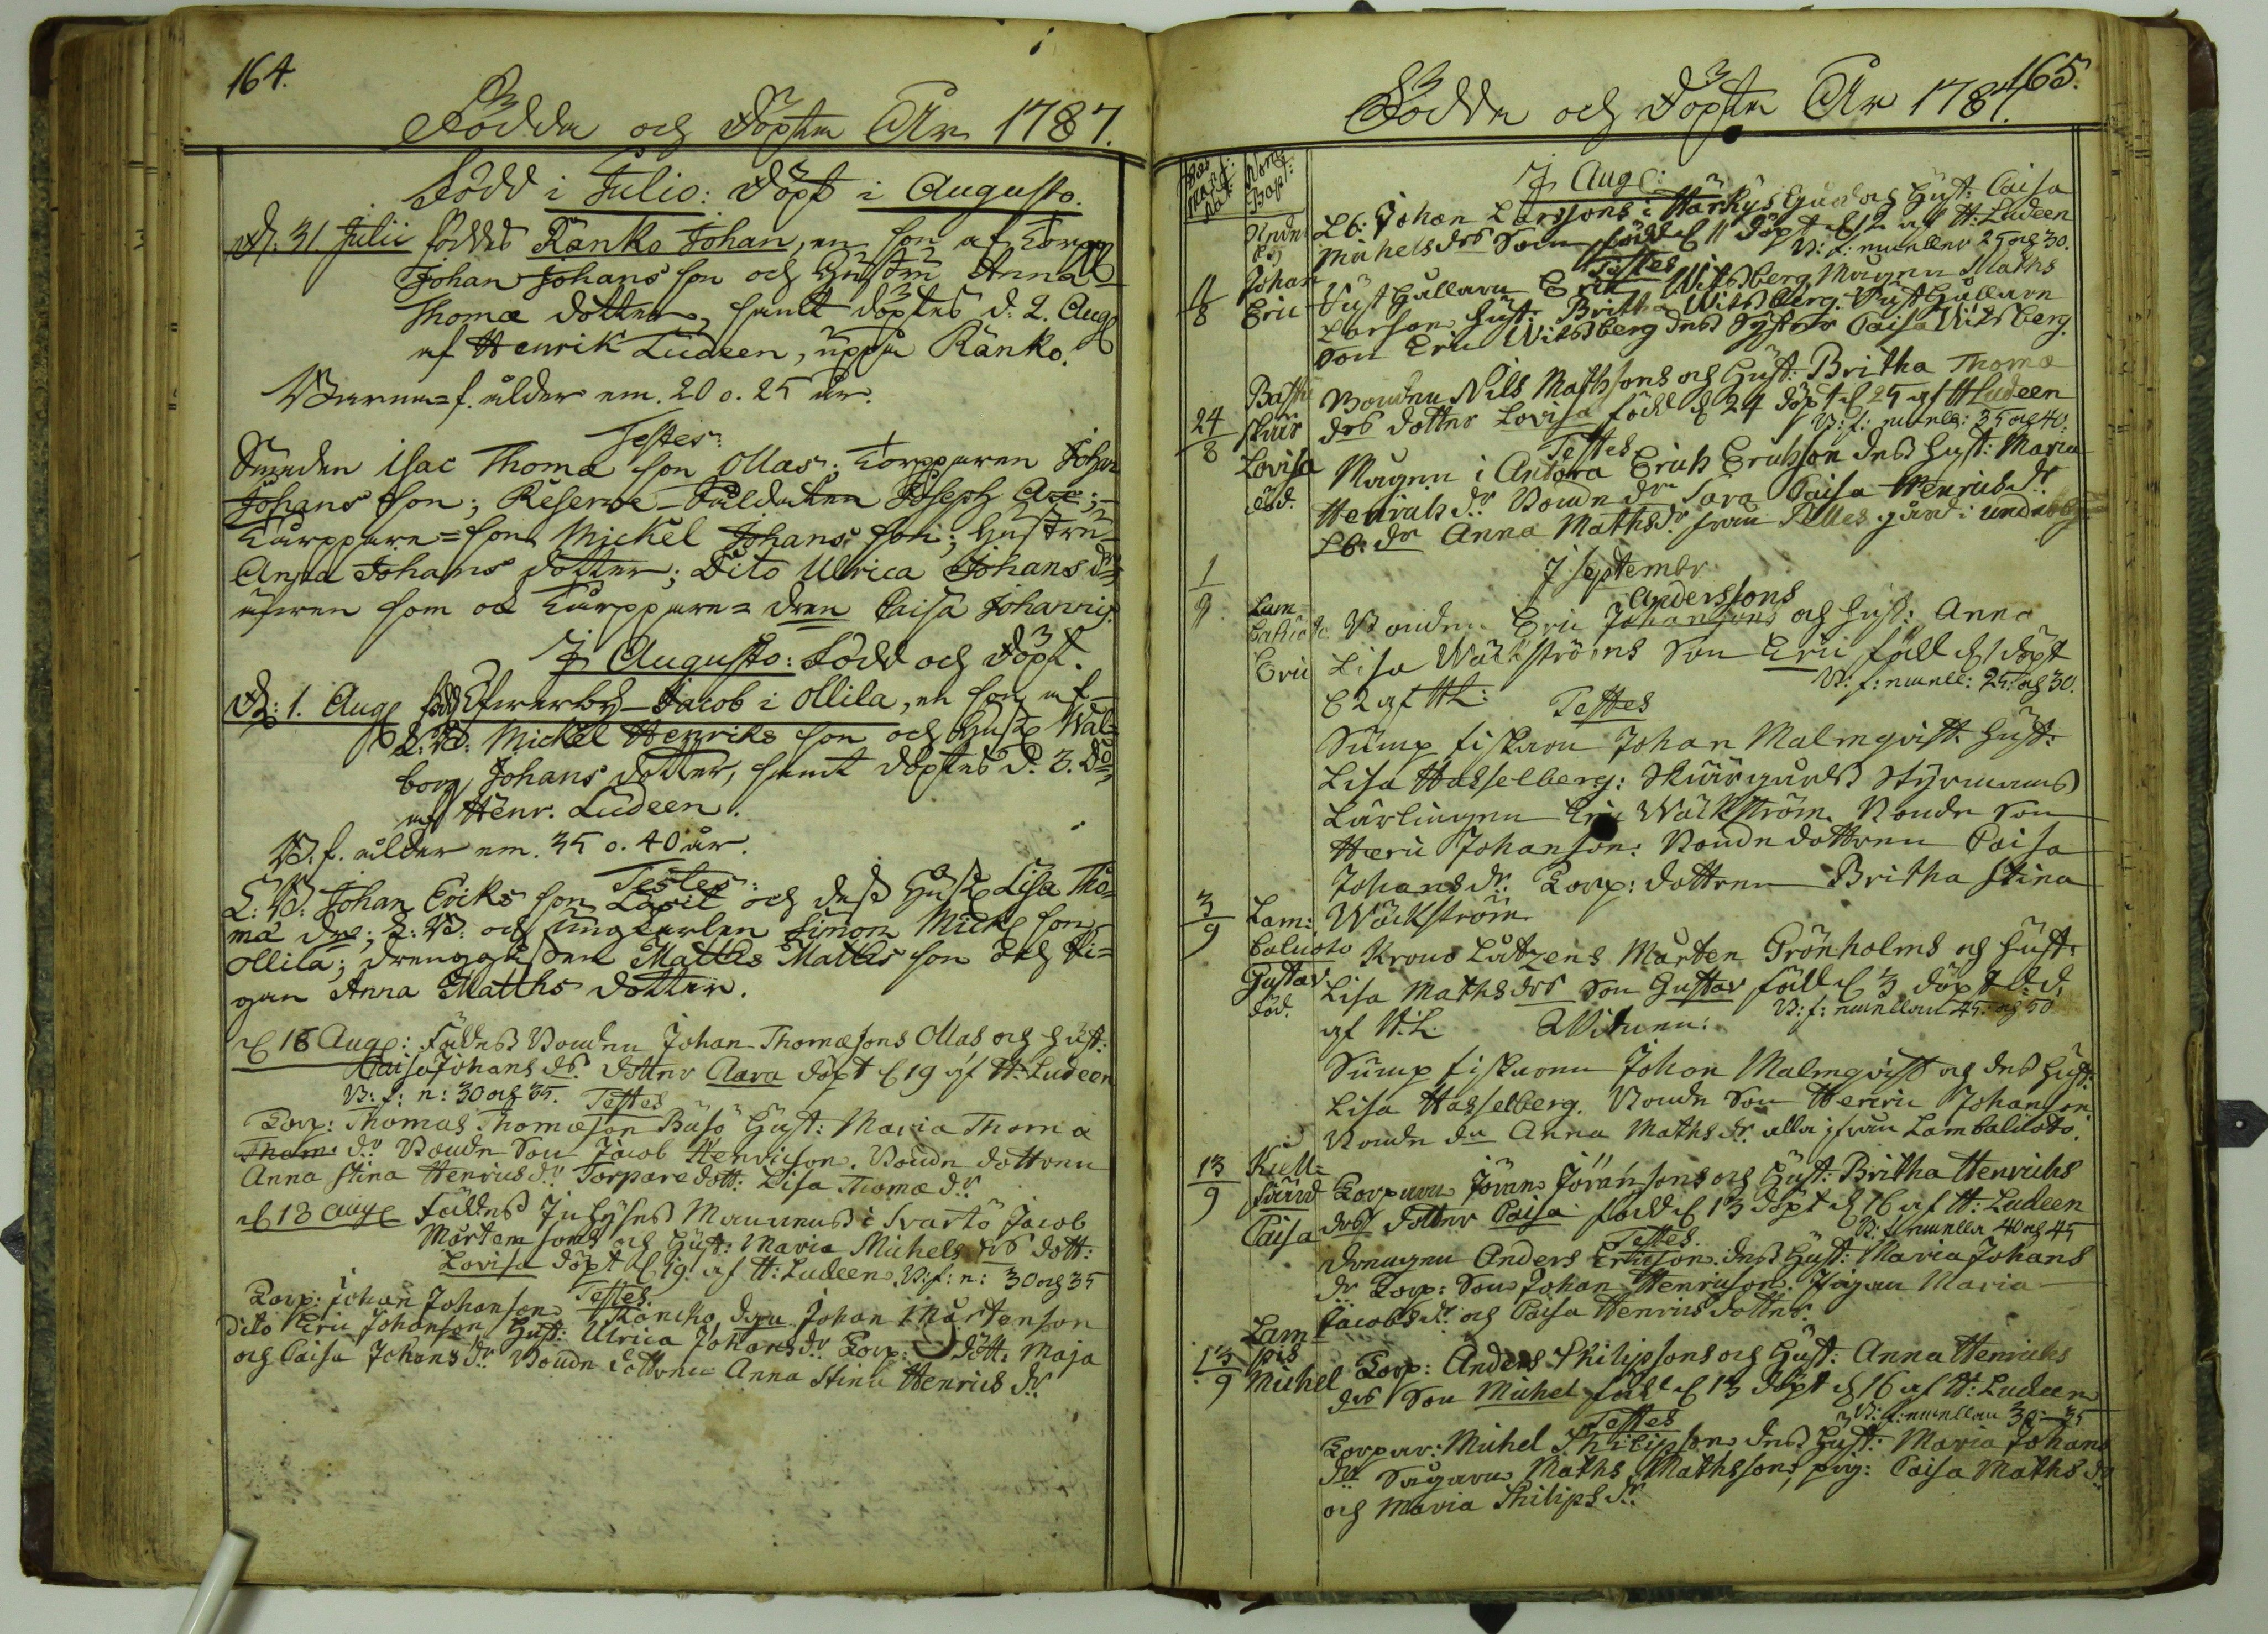 164.
Födda och Döpta År 1787.
Född i Julio: Döpt i Augusto.
D. 31 Julii föddes Ranko Johan, en son af Torpp.
Johan Johans son och Hustru Anna
Thomæ dotter, samt döptes d. 2. Aug
af Henrik Ludeen, uppå Ranko.
Barna=f. ålder em. 20 o. 25 år.
Testes:
Isac Thomæ son Ollas; Torpparen Johan
Johans son; Reserve-Båldaten Joseph
Torppare=son Mickel Johans son; Hustru
Anna Johans dotter; Dito Ulrica Johans dr
äfven som ock Torppare=dren Caisa Johannis.
I Augusto: Född och Döpt.
D: 1. Aug född Jacob i Ollila, en son af
L: B: Mickel Henriks son och Hust Wal=
borg Johans dotter, samt döptes d. 3. Do
af Henr. Ludeen.
B. f. ålder em. 35 o. 40 år.
Testes:
L: B: Johan Eriks son Lavil och dess Hust Lisa Tho=
mæ dr; L: B: och ungkarlen Simon Mick son
Ollila; drenggossen Matths Matths son och Pi=
gan Anna Matths dotter.
d 18 Aug: föddes Bonden Johan Thomæsons Ollas och Hust:
Caisa Johans drs dotter Sara döpt d 19 af H: Ludeen
B: f: n: 30 och 35. Testes
Torp: Thomas Thomæson Busö Hust: Maria Thomæ
Thom: dr Bonde Son Jacob Henricson. Bonde dottren
Anna Stina Henrics dr Torpare dott: Lisa Thomæ dr
d 18 aug föddes Inhyses Mannens i Svartö Jacob
Mårtensons och Hust: Maria Michels drs dott:
Lovisa döpt d 19. af H: Ludeen. B: f: n: 30 och 35
Testes.
Torp: Johan Johanson Rancko, dgn Johan Mårtenson
Dito Eric Johanson Hust: Ulrica Johans dr Torp: dott: Maja
och Caisa Johans dr Bonde dottren Anna Stina Henrics dr
165.
Födda och Döpta År 1787.
Bapt:
I Aug:
Lb: Johan Larssons i Härkys Gård och Hust: Caisa
Michels drs Son född d 11 döpt d 12 af H: Ludeen
B: f: emellan 25 och 30.
11/8 Johan Eric
Testes
Gästgifvaren Eric Witsberg, Mågen Maths
Larson Hust: Britha Witsberg. Gästgifvare
Son Eric Witsberg dess Syster Caisa Witsberg.
24/8 Lovisa död.
Bonden Nils Mathsons och Hust: Britha Thomæ
drs dotter Lovisa född d 24 döpt d 25 af H Ludeen
B: f: emell: 35 och 40.
Testes
Mågen i Antora Erich Erichson dess hust: Maria
Henrichs dr Bonde dr Sara Caisa Henrics dr
Lb: dr Anna Maths dr från Pelles gård i
I September
1/9 Lam Eric
Anderssons
Bonden Eric Johansons och Hust: Anna
Lisa Wäckströms Son Eric född d 1 döpt
d 2 af HL: B: f: emell: 25: och 30.
Testes
Sump fiskaren Johan Malmqvist. Hust:
Lisa Hasselberg: Skiärgårds Styrmans
Lärlingen Eric Wäckström. Bonde Son
Henric Johanson: Bonde dottren Caisa
Johans dr. Torp: dottren Britha Stina
Wäckström
3/9 Lam: baluoto Gustav död.
Krono Lotzens Mårten Grönholms och Hust:
Lisa Maths drs Son Gustav född d 3 döpt d: d:
af H:L. B: f: emellan 45: och 50
Wittnen:
Sump fiskaren Johan Malmqvist och dess Hust:
Lisa Hasselberg. Bonde Son Henric Johanson.
Bonde dr Anna Maths dr. alla från Lambaluoto.
13/9 Caisa
Torparen Jöran Jöransons och Hust: Britha Henrichs
drs dotter Caisa född d 13 döpt d 16 af H: Ludeen
B: f: emellan 40 och 45
Testes.
Drengen Anders Ericson: dess Hust: Maria Johans
dr Torp: Son Johan Henricson. Pigan Maria
Jacobs dr och Caisa Henrics dotter.
13/9 Lam pis Michel
Torp: Anders Philipsons och Hust: Anna Henrichs
drs Son Michel född d 13 döpt d 16 af H: Ludeen
B: f: emellan 30: 35
Testes
Torpar: Michel Philipson dess Hust: Maria Johans
dr Sågaren Maths Mathsson, pig: Caisa Maths dr
och Maria Philips dr.